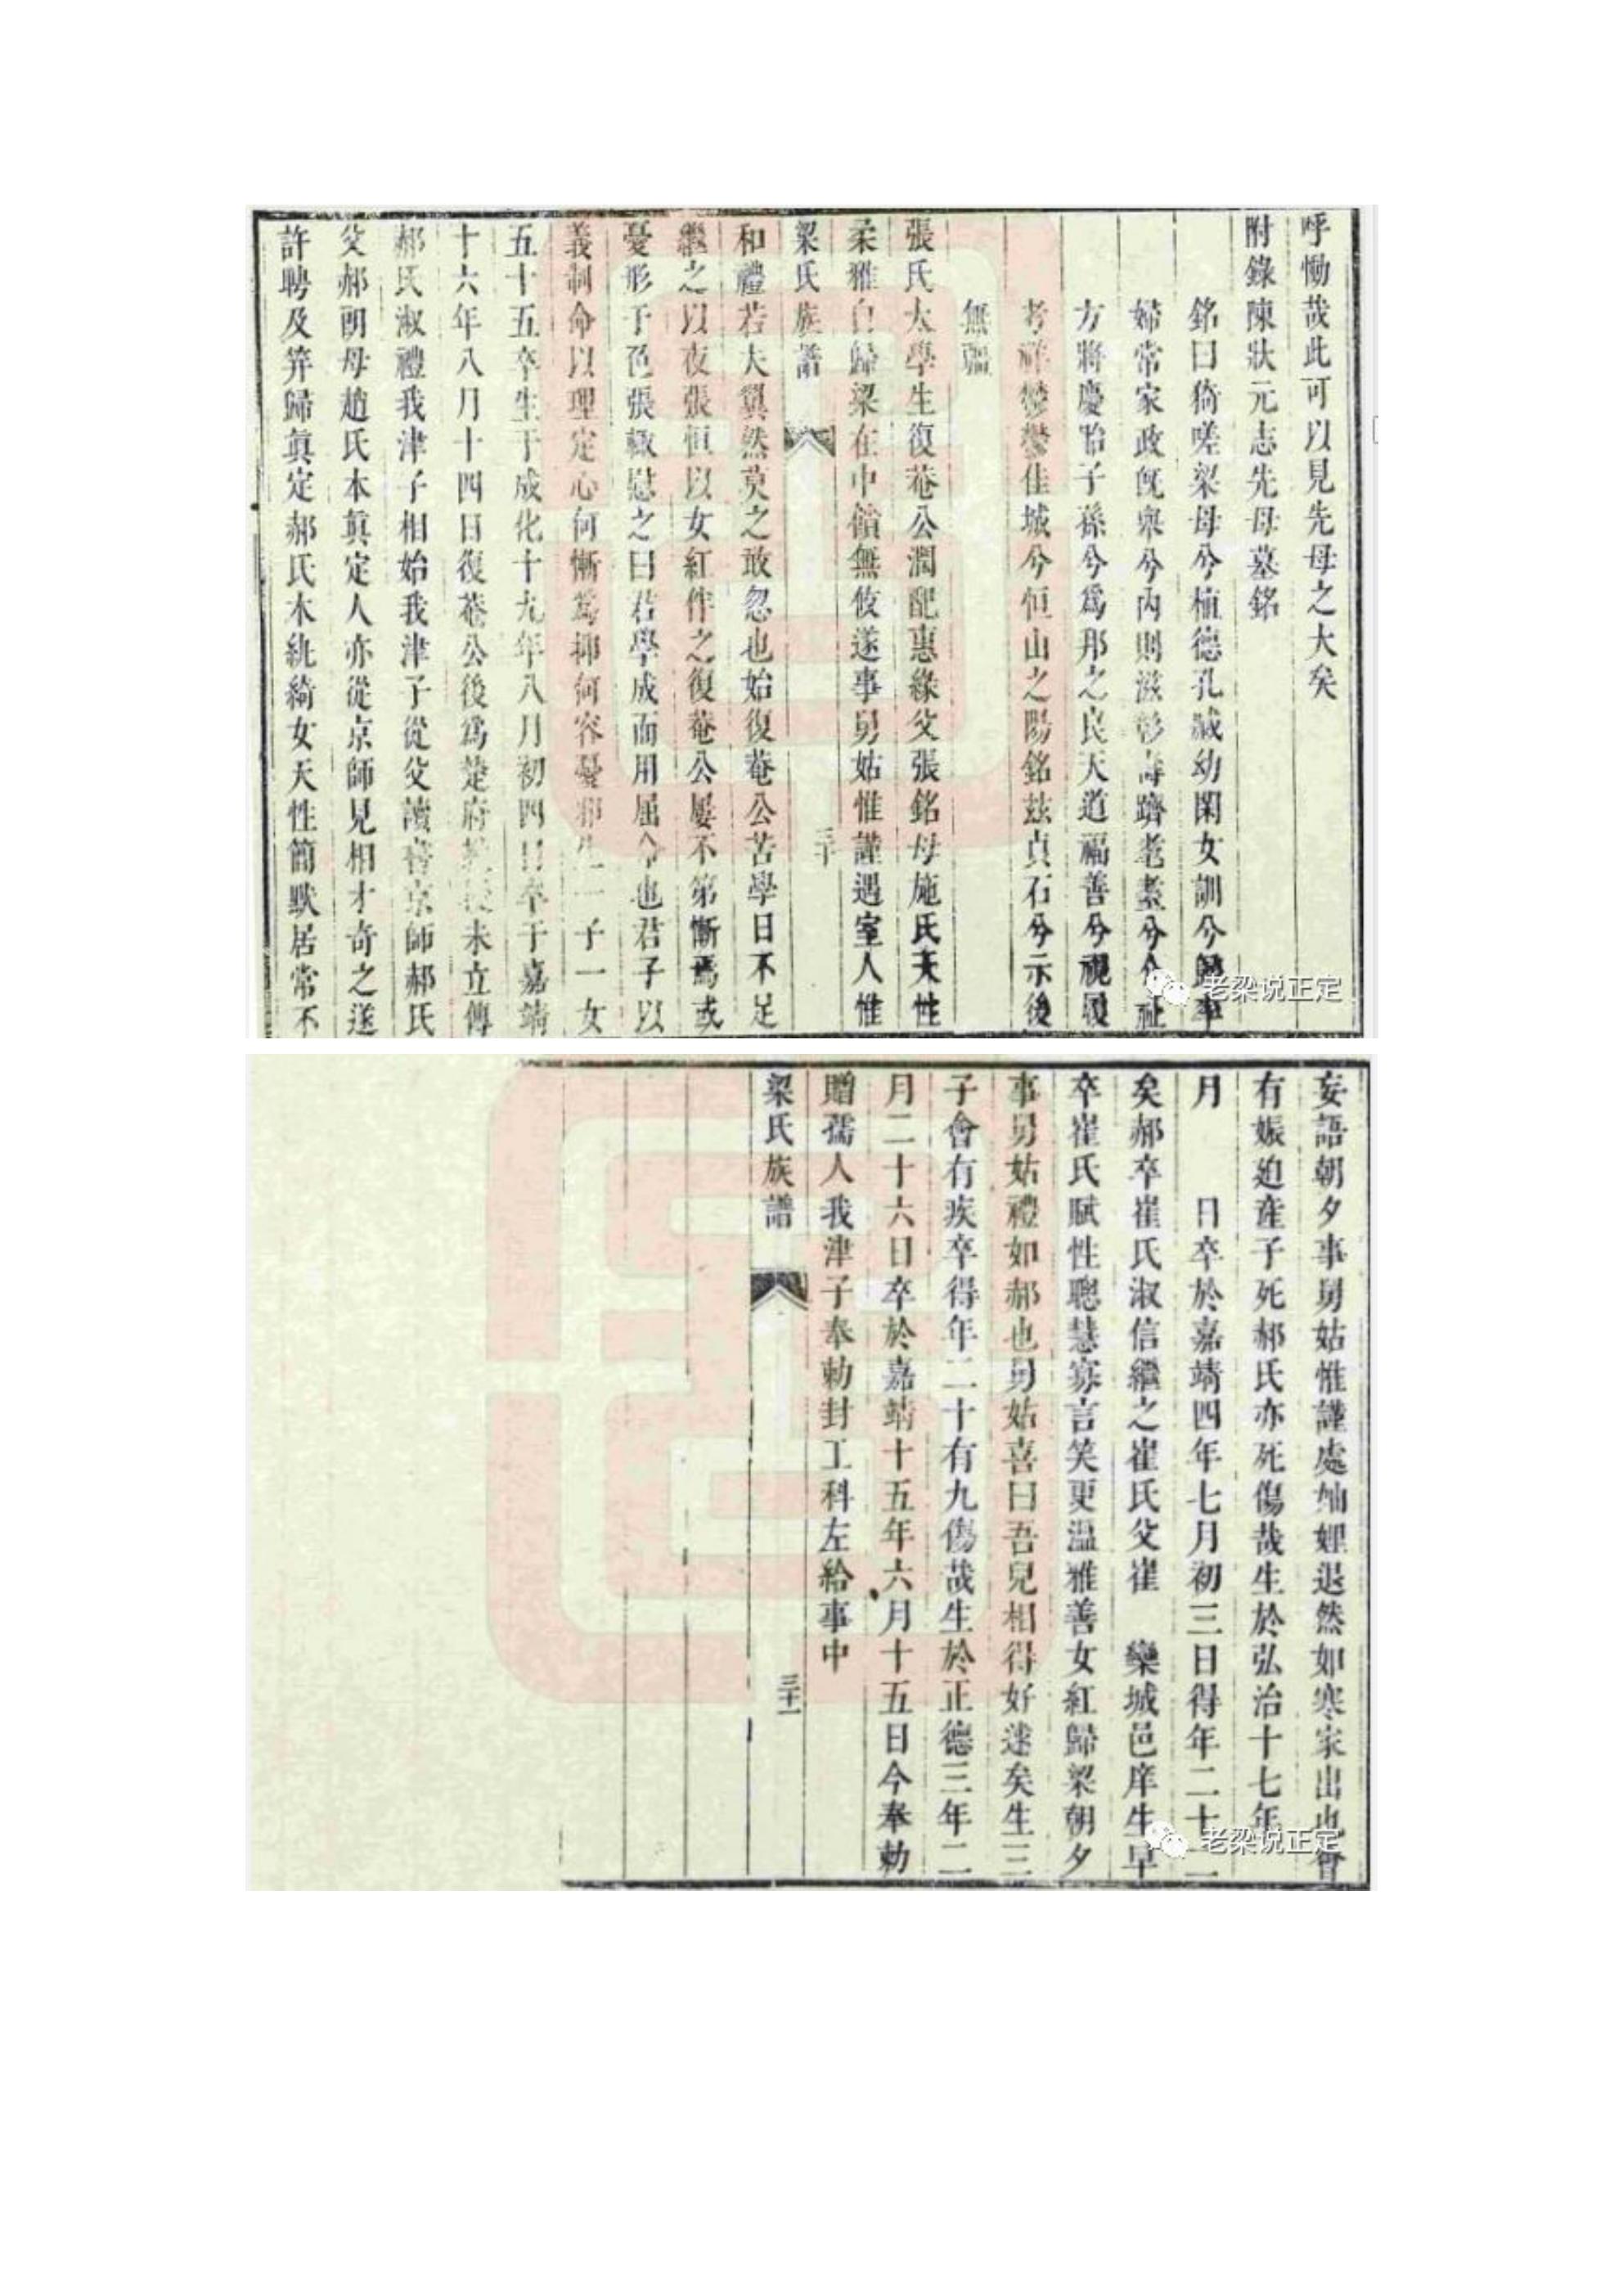 呼慟哉此可以見先母之大矣
附錄陳狀元志先母墓銘
銘曰猗嗟梁母兮植德孔臧幼閑女訓兮歸事
婦常家政既舉兮內則滋彰壽躋耄耋兮介祉
方將慶胎子孫兮爲邦之良天道福善兮視履
考祥鬱鬱佳城兮恒山之陽銘玆貞石兮示後
無疆
張氏太學生復菴公潤配惠緣父張銘母施氏天性
柔雅自歸梁在中饋無攸遂事舅姑惟謹遇室人惟
梁氏族譜
三十
和禮若夫翼然莫之敢忽也始復菴公苦學日不足
繼之以夜張恒以女紅伴之復菴公屢不第慚焉或
憂形于色張輒慰之曰君學成而用屈命也君子以
義制命以理定心何慚爲抑何容憂邪生一子一女
五十五卒生于成化十九年八月初四日卒于嘉靖
十六年八月十四日復菴公後爲楚府未立傳
郝氏淑禮我津子相始我津子從父讀書京師郝氏
父郝朗母趙氏本眞定人亦從京師見相才奇之遂
許聘及笄歸眞定郝氏本紈綺女天性簡默居常不
妄語朝夕事舅姑惟謹處妯娌退然如寒家出也會
有娠迫產子死郝氏亦死傷哉生於弘治十七年
月 日卒於嘉靖四年七月初三日得年二十二
矣郝卒崔氏淑信繼之崔氏父崔 欒城邑庠生早
卒崔氏賦性聰慧寡言笑更溫雅善女紅歸梁朝夕
事舅姑禮如郝也舅姑喜曰吾兒相得好逑矣生三
子會有疾卒得年二十有九傷哉生於正德三年二
月二十六日卒於嘉靖十五年六月十五日今奉勅
贈孺人我津子奉勅封工科左給事中
梁氏族譜
三十一
老梁说正定
老梁说正定